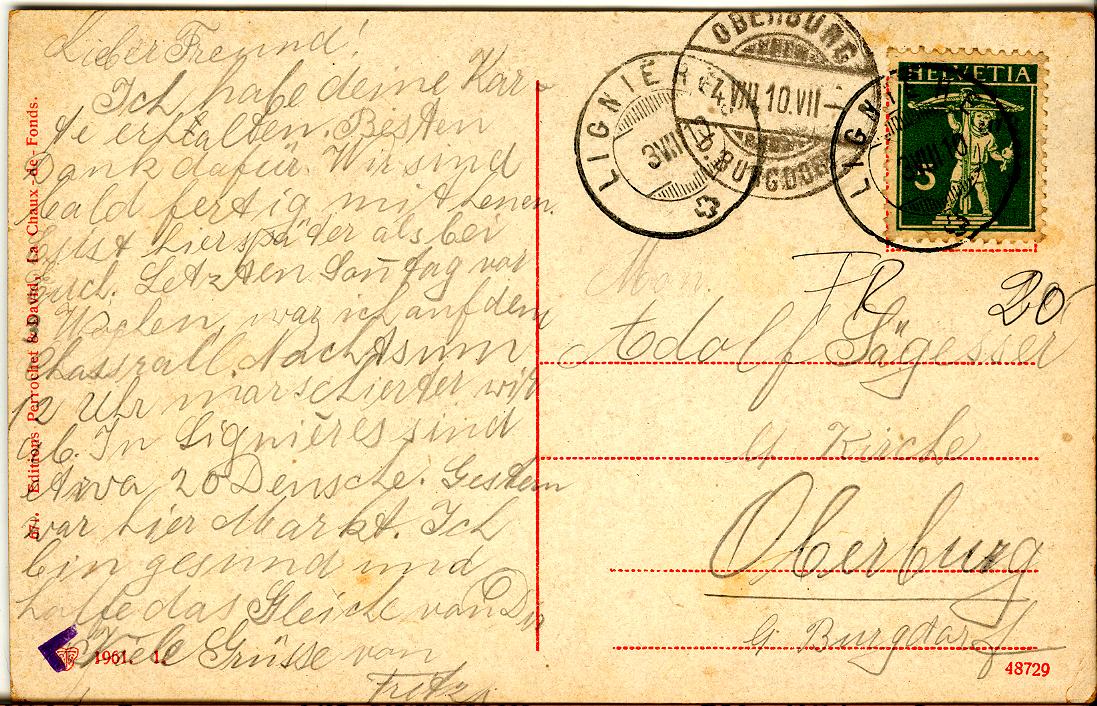 Lieber Freund!
Ich habe deine Kar-
te erhalten. Besten
Dank dafür. Wir sind
bald fertig mit heuen.
Es ist hier später als bei
Euch. Letzten Sonntag vor
Wochen, war ich auf dem
Chasserall. Nachts um
12 Uhr marschierten wir
ab. In Lignières sind
etwa 20 Deutsche. Gestern
war hier Markt. Ich
bin gesund und
hoffe das Gleiche von Dir
Viele Grüsse von
Fritz
671. Editions Perrochet & David, La Chaux-de-Fonds.
1961. 1.
LIGNIÈRES
3 VII
OBERBURG
4.VIII.10.VII-
B. BURGDORF
LIGNIÈRES
VIII 10
HELVETIA
5
FR 20
Mon.
Adolf Sägesser
Kirche
Oberburg
Burgdorf
48729